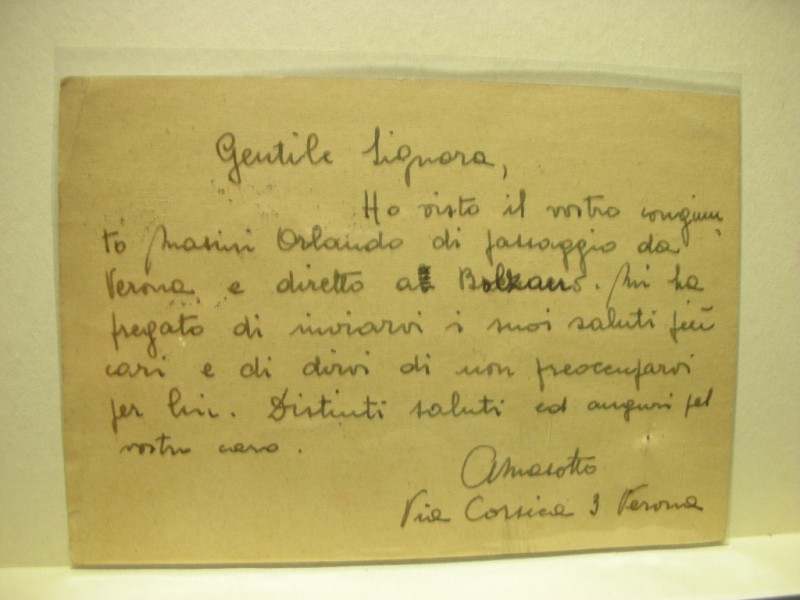 Gentile Signora,
Ho visto il vostro congiun
to Masini Orlando di passaggio da
Verona e diretto a Bolzano. Mi ha
pregato di inviarvi i suoi saluti più
cari e di dirvi di non preoccuparvi
per lui. Distinti saluti ed auguri pel
vostro caro.
AMasotto
Via Corsica 3 Verona